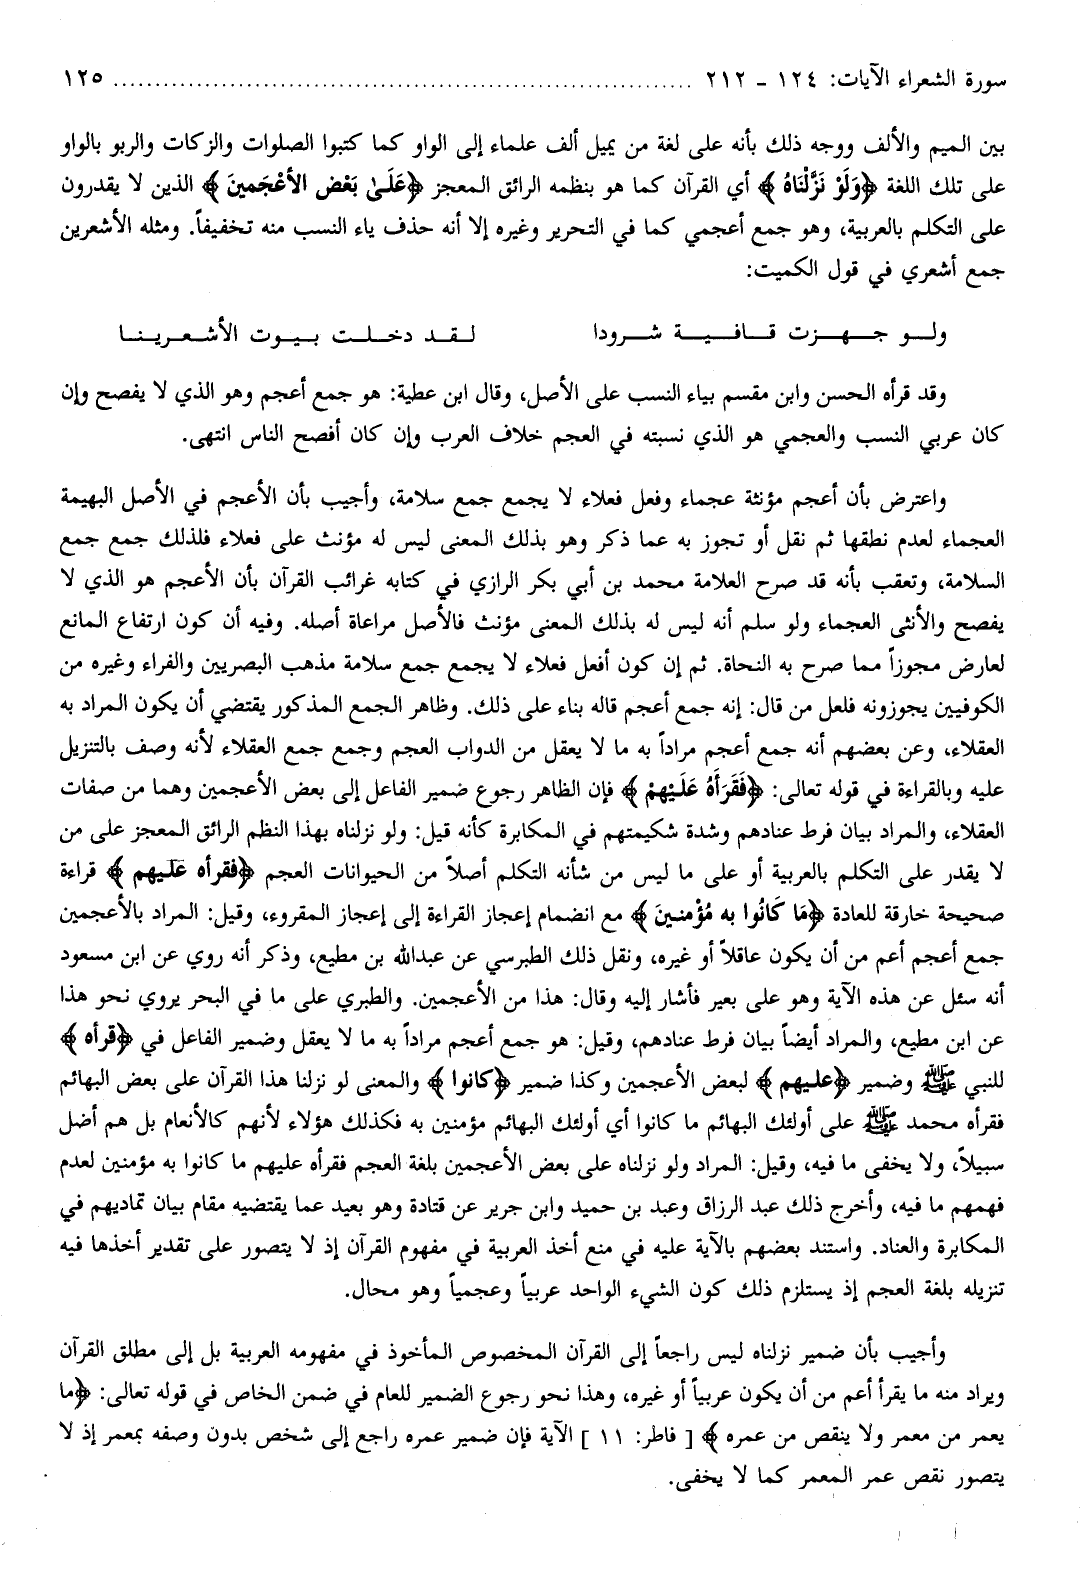 سورة الشعراء الآيات: ١٢٤ ـ ٢١٢ ................................................................ ١٢٥
بين الميم والألف ووجه ذلك بأنه على لغة من يميل ألف علماء إلى الواو كما كتبوا الصلوات والزكات والربو بالواو
على تلك اللغة ﴿وَلَوْ نَزَّلْنَاهُ﴾ أي القرآن كما هو بنظمه الرائق المعجز ﴿عَلَىٰ بَعْض الأعْجَمينَ﴾ الذين لا يقدرون
على التكلم بالعربية، وهو جمع أعجمي كما في التحرير وغيره إلا أنه حذف ياء النسب منه تخفيفاً. ومثله الأشعرين
جمع أشعري في قول الكميت:
ولـو جـهـزت قـافـيـة شـرودا لـقـد دخـلـت بـيـوت الأشـعـريـنـا
وقد قرأه الحسن وابن مقسم بياء النسب على الأصل، وقال ابن عطية: هو جمع أعجم وهو الذي لا يفصح وإن
كان عربي النسب والعجمي هو الذي نسبته في العجم خلاف العرب وإن كان أفصح الناس انتهى.
واعترض بأن أعجم مؤنثة عجماء وفعل فعلاء لا يجمع جمع سلامة، وأجيب بأن الأعجم في الأصل البهيمة
العجماء لعدم نطقها ثم نقل أو تجوز به عما ذكر وهو بذلك المعنى ليس له مؤنث على فعلاء فلذلك جمع جمع
السلامة، وتعقب بأنه قد صرح العلامة محمد بن أبي بكر الرازي في كتابه غرائب القرآن بأن الأعجم هو الذي لا
يفصح والأنثى العجماء ولو سلم أنه ليس له بذلك المعنى مؤنث فالأصل مراعاة أصله. وفيه أن كون ارتفاع المانع
لعارض مجوزاً مما صرح به النحاة. ثم إن كون أفعل فعلاء لا يجمع جمع سلامة مذهب البصريين والفراء وغيره من
الكوفيين يجوزونه فلعل من قال: إنه جمع أعجم قاله بناء على ذلك. وظاهر الجمع المذكور يقتضي أن يكون المراد به
العقلاء، وعن بعضهم أنه جمع أعجم مراداً به ما لا يعقل من الدواب العجم وجمع جمع العقلاء لأنه وصف بالتنزيل
عليه وبالقراءة في قوله تعالى: ﴿فَقَرَأَهُ عَلَيْهِمْ﴾ فإن الظاهر رجوع ضمير الفاعل إلى بعض الأعجمين وهما من صفات
العقلاء، والمراد بيان فرط عنادهم وشدة شكيمتهم في المكابرة كأنه قيل: ولو نزلناه بهذا النظم الرائق المعجز على من
لا يقدر على التكلم بالعربية أو على ما ليس من شأنه التكلم أصلاً من الحيوانات العجم ﴿فقرأه عليهم﴾ قراءة
صحيحة خارقة للعادة ﴿مَا كَانُوا به مُؤْمنينَ﴾ مع انضمام إعجاز القراءة إلى إعجاز المقروء، وقيل: المراد بالأعجمين
جمع أعجم أعم من أن يكون عاقلاً أو غيره، ونقل ذلك الطبرسي عن عبدالله بن مطيع، وذكر أنه روي عن ابن مسعود
أنه سئل عن هذه الآية وهو على بعير فأشار إليه وقال: هذا من الأعجمين. والطبري على ما في البحر يروي نحو هذا
عن ابن مطيع، والمراد أيضاً بيان فرط عنادهم، وقيل: هو جمع أعجم مراداً به ما لا يعقل وضمير الفاعل في ﴿قرأه﴾
للنبي ﷺ وضمير ﴿عليهم﴾ لبعض الأعجمين وكذا ضمير ﴿كانوا﴾ والمعنى لو نزلنا هذا القرآن على بعض البهائم
فقرأه محمد ﷺ على أولئك البهائم ما كانوا أي أولئك البهائم مؤمنين به فكذلك هؤلاء لأنهم كالأنعام بل هم أضل
سبيلاً، ولا يخفى ما فيه، وقيل: المراد ولو نزلناه على بعض الأعجمين بلغة العجم فقرأه عليهم ما كانوا به مؤمنين لعدم
فهمهم ما فيه، وأخرج ذلك عبد الرزاق وعبد بن حميد وابن جرير عن قتادة وهو بعيد عما يقتضيه مقام بيان تماديهم في
المكابرة والعناد. واستند بعضهم بالآية عليه في منع أخذ العربية في مفهوم القرآن إذ لا يتصور على تقدير أخذها فيه
تنزيله بلغة العجم إذ يستلزم ذلك كون الشيء الواحد عربياً وعجمياً وهو محال.
وأجيب بأن ضمير نزلناه ليس راجعاً إلى القرآن المخصوص المأخوذ في مفهومه العربية بل إلى مطلق القرآن
ويراد منه ما يقرأ أعم من أن يكون عربياً أو غيره، وهذا نحو رجوع الضمير للعام في ضمن الخاص في قوله تعالى: ﴿ما
يعمر من معمر ولا ينقص من عمره﴾ [ فاطر: ١١ ] الآية فإن ضمير عمره راجع إلى شخص بدون وصفه بمعمر إذ لا
يتصور نقص عمر المعمر كما لا يخفى.